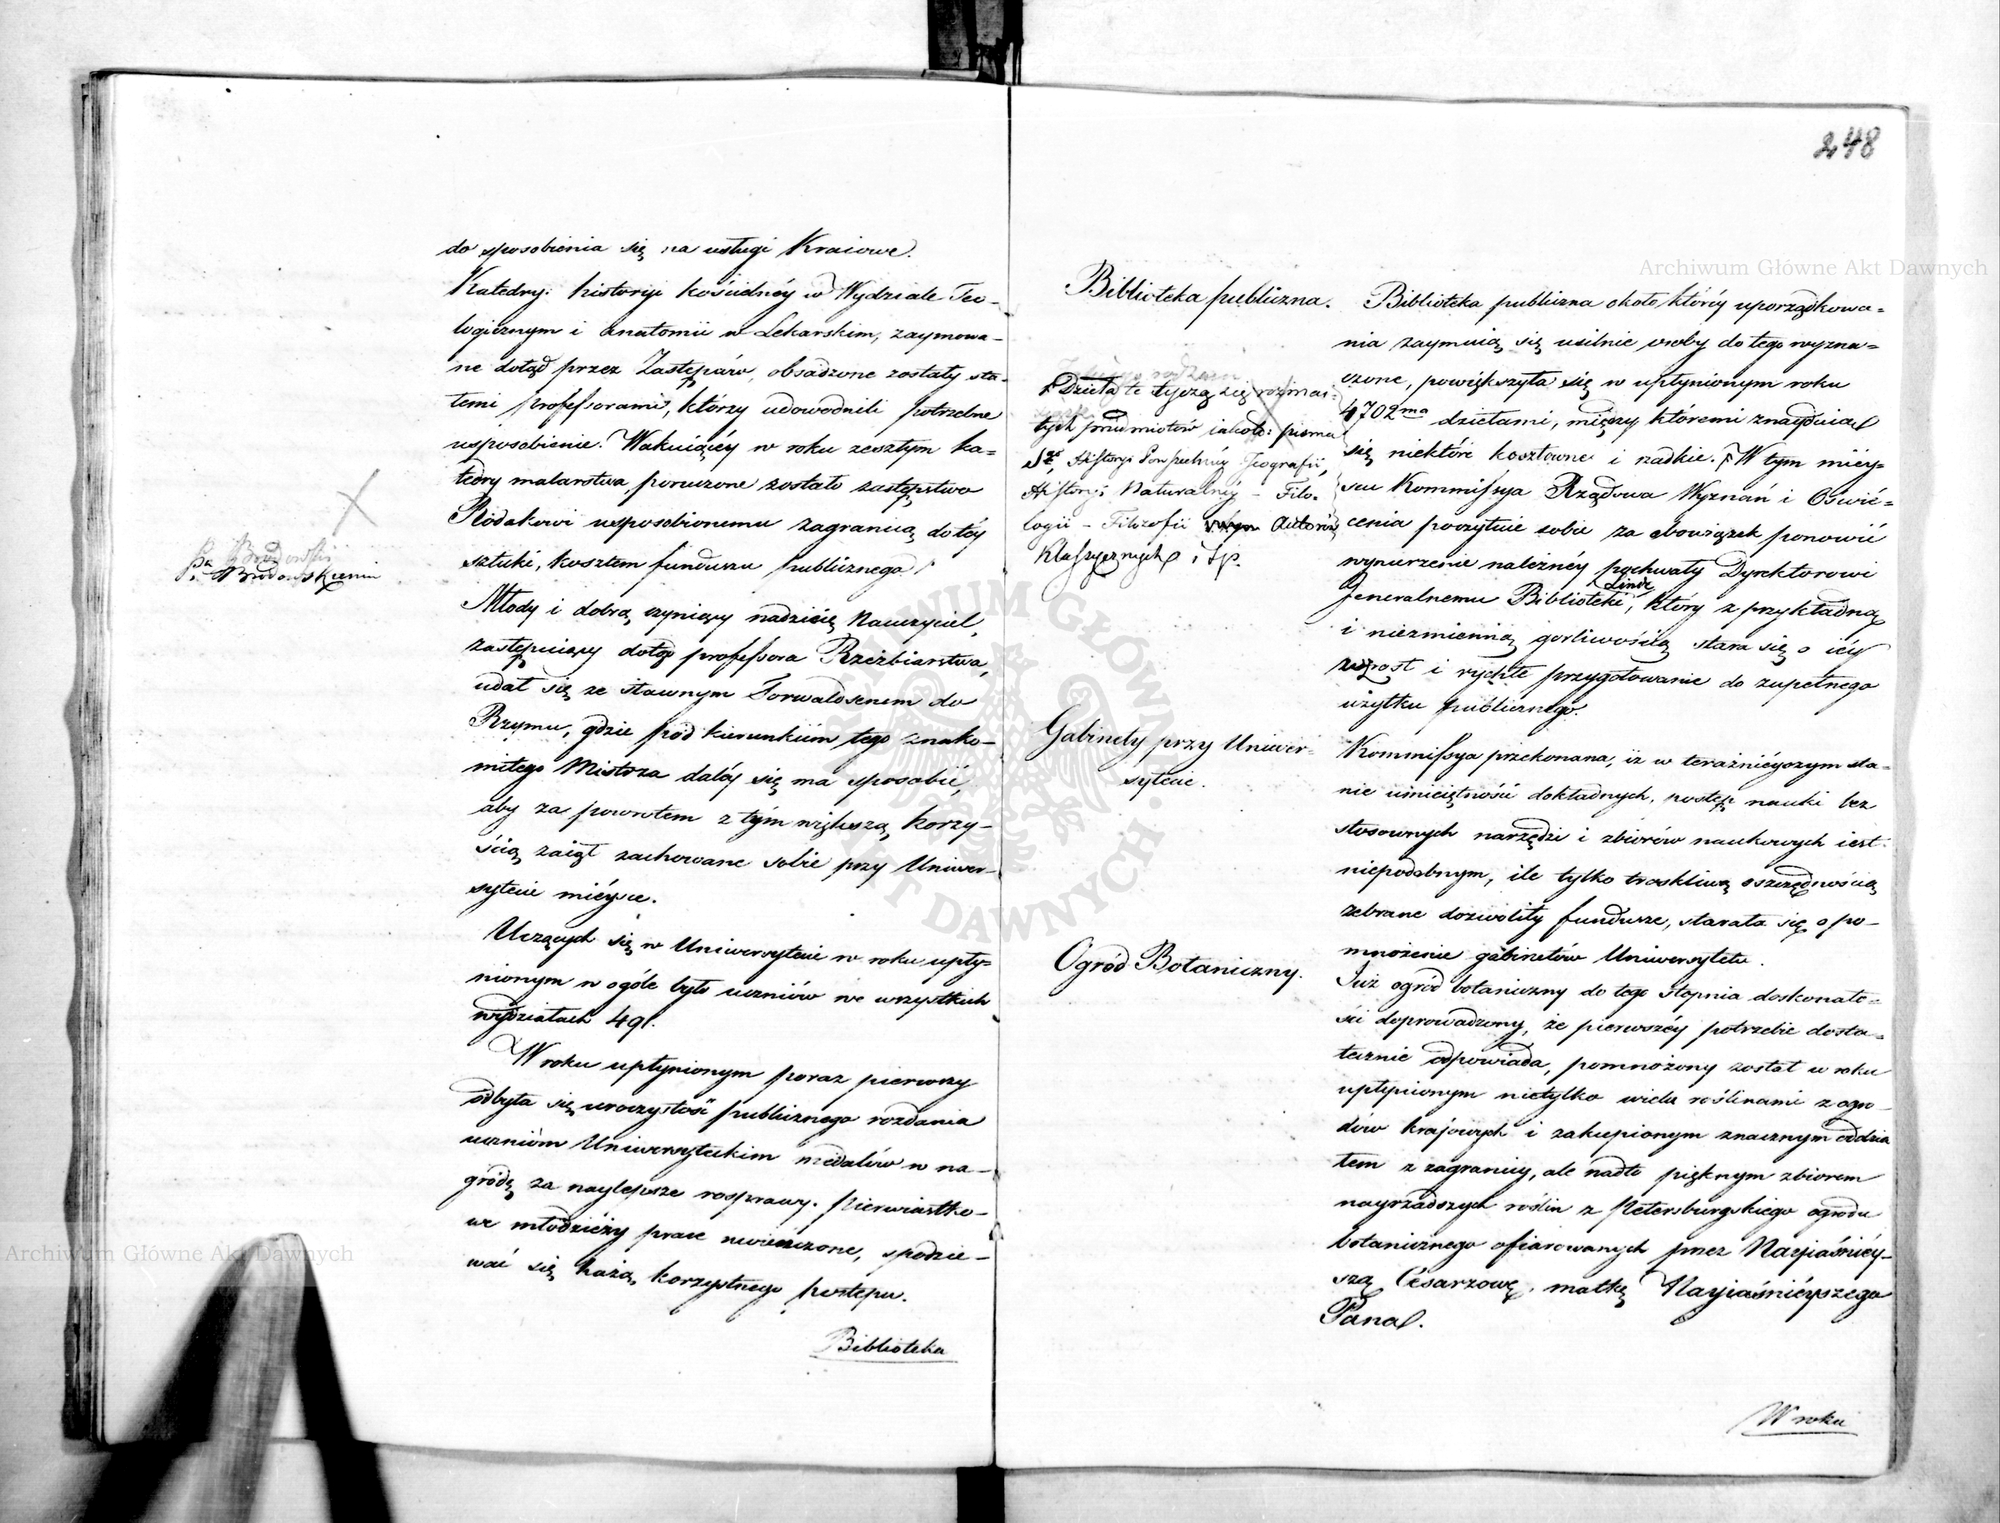 248
do sposobienia się na usługi Kraiowe.
Katedry: historyi kościelnéy w Wydziale Teo-
logicznym i anatomii w Lekarskim, zaymowa-
ne dotąd przez Zastępców, obsadzone zostały sta-
łemi professorami, którzy udowodnili potrzebne
usposobienie. Wakuiącéy w roku zeszłym ka-
tedry malarstwa, poruczone zostało zastępstwo
Rodakowi usposobionemu zagranicą do téy
sztuki, kosztem funduszu publicznego.
Pu Brodowski
Pu Brodowskiemu
Młody i dobrą czyniący nadzieię Nauczyciel,
zastępuiący dotąd professora Rzeźbiarstwa,
udał się ze sławnym Torwaldsenem do
Rzymu, gdzie pod kierunkiem tego znako-
mitego Mistrza daléy się ma sposobić,
aby za powrotem z tym większą korzy-
ścią zaiął zachowane sobie przy Uniwer-
sytecie mieysce.
Uczących się w Uniwersytecie w roku upły-
nionym w ogóle było uczniów we wszystkich
wydziałach 491.
W roku upłynionym poraz pierwszy
odbyła się uroczystość publicznego rozdania
uczniom Uniwersyteckim medalów w na-
grodę za naylepsze rosprawy. Pierwiastko-
we młodzieży prace uwieńczone, spodzie-
wać się każą korzystnego postępu.
Biblioteka
Biblioteka publiczna.
Biblioteka publiczna około któréy uporządkowa-
nia zaymuią się usilnie osoby do tego wyzna-
czone, powiększyła się w upłynionym roku
4702ma dziełami, między któremi znayduią
się niektóre kosztowne i rzadkie. F W tym miéy-
scu Kommissya Rządowa Wyznań i Oświe-
cenia poczytuie sobie za obowiązek ponowić
wynurzenie należnéy pochwały Dyrektorowi
Generalnemu Biblioteki Linde, który z przykładną
i niezmienną gorliwością stara się o iéy
wzrost i rychłe przygotowanie do zupełnego
użytku publicznego.
F Dzieła te tyczą się rozmai-
tych przedmiotów iakoto: pisma
Sgo, Historyi Powszechnéy Jeografii,
Historyi Naturalnéy - Filo-
logii - Filozofii Autorów
Klassycznych i t.p.
Gabinety przy Uniwer-
sytecie.
Kommissya przekonana, iż w teraźnieyszym sta-
nie umieiętności dokładnych, postęp nauki bez
stosownych narzędzi i zbiorów naukowych iest
niepodobnym, ile tylko troskliwą oszczędnością
zebrane dozwoliły fundusze, starała się o po-
mnożenie gabinetów Uniwersytetu.
Ogród Botaniczny.
Już ogród botaniczny do tego stopnia doskonało-
ści doprowadzony, że pierwszéy potrzebie dosta-
tecznie odpowiada, pomnożony został w roku
upłynionym nietylko wielu roślinami z ogro-
dów krajowych i zakupionym znacznym oddzia
łem z zagranicy, ale nadto pięknym zbiorem
nayrzadszych roślin z Petersburgskiego ogrodu
botanicznego ofiarowanych przez Nayiaśniéy-
szą Césarzową, matkę Nayiaśnieyszego
Pana.
W roku
Archiwum Główne Akt Dawnych
Archiwum Główne Akt Dawnych
ARCHIWUM GŁÓWNE AKT DAWNYCH